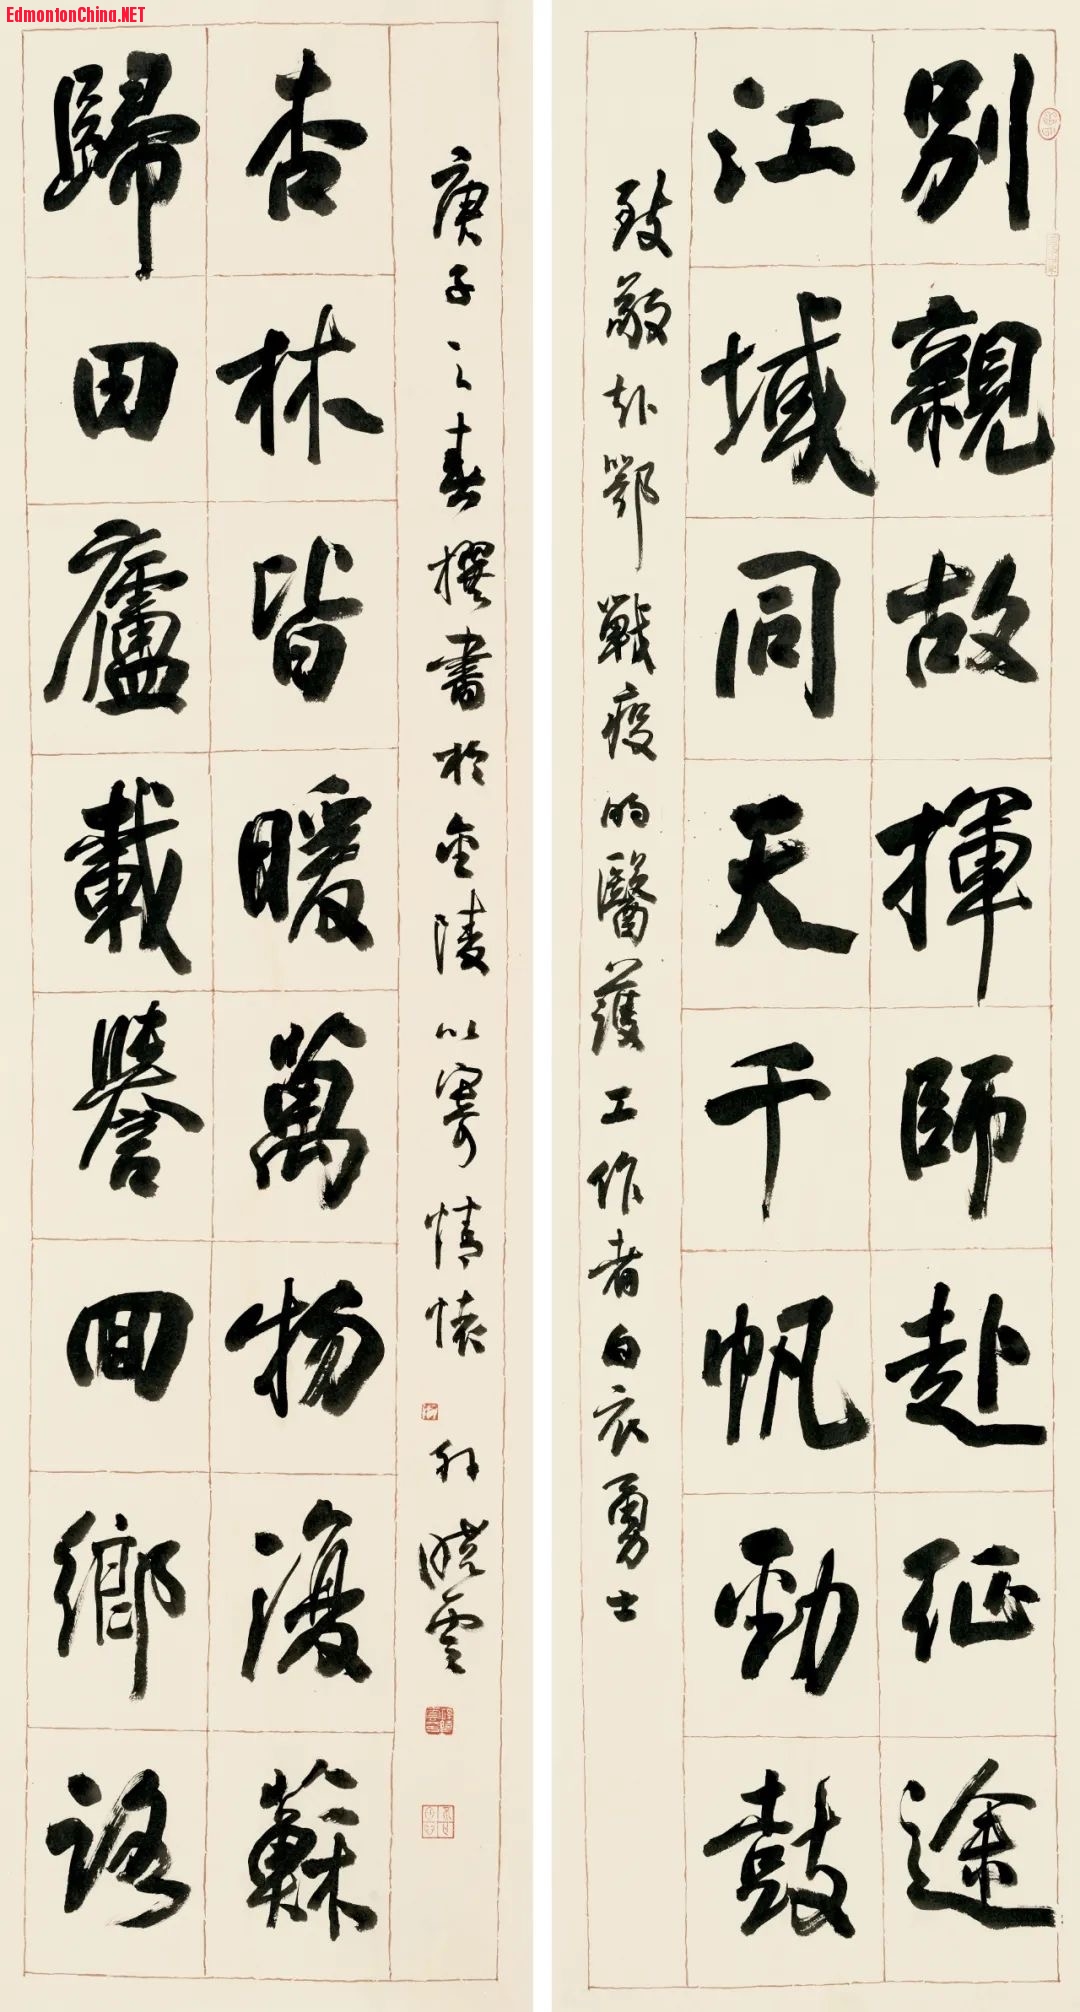 EdmontonChina.NET
別親故揮師赴征途
江域同天千帆勁鼓
致敬赴鄂戰疫的醫護工作者白衣勇士
歸田廬載譽回鄉路
杏林皆暖萬物復蘇
庚子之春撰書於金陵以寄情懷 孫曉雲